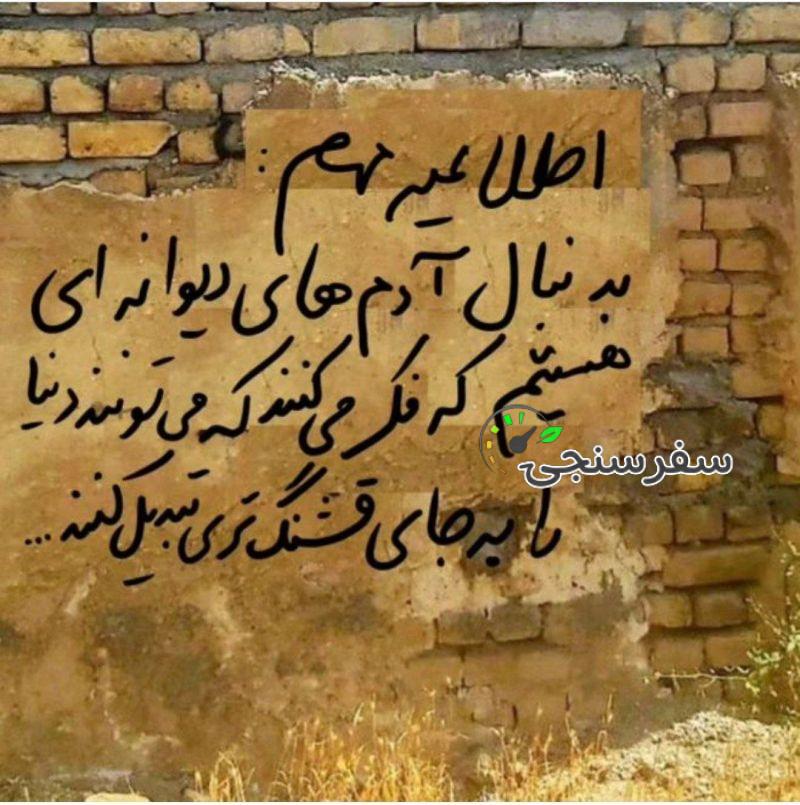 اطلاعیه مهم :
به دنبال آدم های دیوانه ای
هستیم که فکر می کنند که می تونند دنیا
سفرسنجی
را به جای قشنگ تری تبدیل کنند...